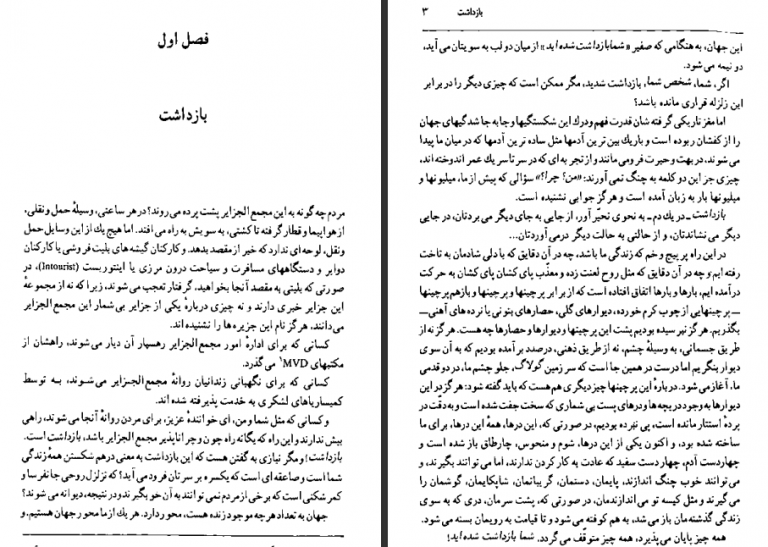 فصل اول
بازداشت
مردم چه گونه به این مجمع الجزایر پشت پرده می روند؟ در هر ساعتی، وسیلهٔ حمل و نقلی،
از هواپیما و قطار گرفته تا کشتی، به سویش به راه می افتد. اما هیچ یک از این وسایل حمل
ونقل، لوحه ای ندارد که خبر از مقصد بدهد. و کارکنان گیشه های بلیت فروشی یا کارکنان
دوایر و دستگاههای مسافرت و سیاحت درون مرزی یا اینتوریست (Intourist)، در
صورتی که بلیتی به مقصد آنجا بخواهید، گرفتار تعجب می شوند، زیرا که نه از مجموعهٔ
این جزایر خبری دارند و نه چیزی دربارهٔ یکی از جزایر بی شمار این مجمع الجزایر
می دانند. هرگز نام این جزیره ها را نشنیده اند.
کسانی که برای ادارهٔ امور مجمع الجزایر رهسپار آن دیار می شوند، راهشان از
مکتبهای MVD۱ می گذرد.
کسانی که برای نگهبانی زندانیان روانهٔ مجمع الجزایر می شوند، به توسط
کمیساریاهای لشکری به خدمت پذیرفته شده اند.
و کسانی که مثل شما و من، ای خوانندهٔ عزیز، برای مردن روانهٔ آنجا می شوند، راهی
بیش ندارند و این راه که یگانه راه چون و چرا ناپذیر مجمع الجزایر باشد، بازداشت است.
بازداشت! و مگر نیازی به گفتن هست که این بازداشت به معنی درهم شکستن همهٔ زندگی
شما است و صاعقه ای است که یکسره بر سرتان فرود می آید؟ که تزلزل روحی جانفرسا و
کمرشکنی است که برخی از مردم نمی توانند به آن خو بگیرند و در نتیجه، دیوانه می شوند؟
جهان به تعداد هرچه موجود زنده هست، محور دارد. هر یک از ما محور جهان هستیم. و
بازداشت ۳
این جهان، به هنگامی که صفیر «شما بازداشت شده اید» از میان دو لب به سویتان می آید،
دو نیمه می شود.
اگر، شما، شخص شما، بازداشت شدید، مگر ممکن است که چیزی دیگر را در برابر
این زلزله قراری مانده باشد؟
اما مغز تاریکی گرفته شان قدرت فهم و درک این شکستگیها و جا به جا شدگیهای جهان
را از کفشان ربوده است و باریک بین ترین آدمها مثل ساده ترین آدمها که در میان ما پیدا
می شوند، در بهت و حیرت فرو می مانند و از تجربه ای که در سرتاسر یک عمر اندوخته اند،
چیزی جز این دو کلمه به چنگ نمی آورند: «من؟ چرا؟» سؤالی که پیش از ما، میلیونها و
میلیونها بار به زبان آمده است و هرگز جوابی نشنیده است.
بازداشت ـ در یک دم ـ به نحوی تحیّر آور، از جایی به جای دیگر می بردتان، در جایی
دیگر می نشاندتان، و از حالتی به حالت دیگر درمی آوردتان...
در این راه پرپیچ و خم که زندگی ما باشد، چه در آن دقایق که با دلی شادمان به تاخت
رفته ایم و چه در آن دقایق که مثل روح لعنت زده و معذّب پای کشان پای کشان به حرکت
درآمده ایم، بارها و بارها اتفاق افتاده است که از برابر پرچینها و پرچینها و بازهم پرچینها
ـــ پرچینهایی از چوب کرم خورده، دیوارهای گلی، حصارهای بتونی یا نرده های آهنی ـــ
بگذریم. هرگز نپرسیده بودیم پشت این پرچینها و دیوارها و حصارها چه هست. هرگز نه از
طریق جسمانی، به وسیلهٔ چشم، نه از طریق ذهنی، درصدد برآمده بودیم که به آن سوی
دیوار بنگریم اما درست در همین جا است که سرزمین گولاگ، جلو چشم ما، در دو قدمی
ما، آغاز می شود. دربارهٔ این پرچینها چیز دیگری هم هست که باید گفته شود: هرگز در این
دیوارها به وجود دریچه ها و درهای پست بی شماری که سخت جفت شده است و به دقّت در
پردهٔ استتار مانده است، پی نبرده بودیم، در صورتی که، این درها، همهٔ این درها، برای ما
ساخته شده بود. و اکنون یکی از این درها، شوم و منحوس، چارطاق باز شده است و
چهاردست آدم، چهاردست سفید که عادت به کار کردن ندارند، اما می توانند بگیرند، و
می توانند خوب چنگ اندازند، پایمان، دستمان، گریبانمان، شاپکایمان، گوشمان را
می گیرند و مثل کیسه تو می اندازندمان، در صورتی که، پشت سرمان، دری که به سوی
زندگی گذشته مان باز می شد، به هم کوفته می شود و تا قیامت به رویمان بسته می شود.
همه چیز پایان می پذیرد، همه چیز متوقّف می گردد. شما بازداشت شده اید!